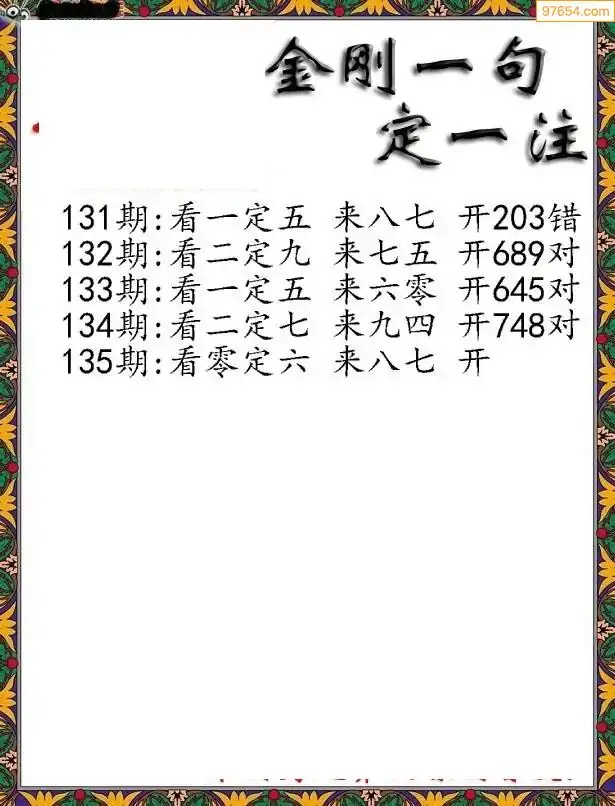 97654.com
金刚一句
定一注
131期:看一定五 来八七 开203错
132期:看二定九 来七五 开689对
133期:看一定五 来六零 开645对
134期:看二定七 来九四 开748对
135期:看零定六 来八七 开